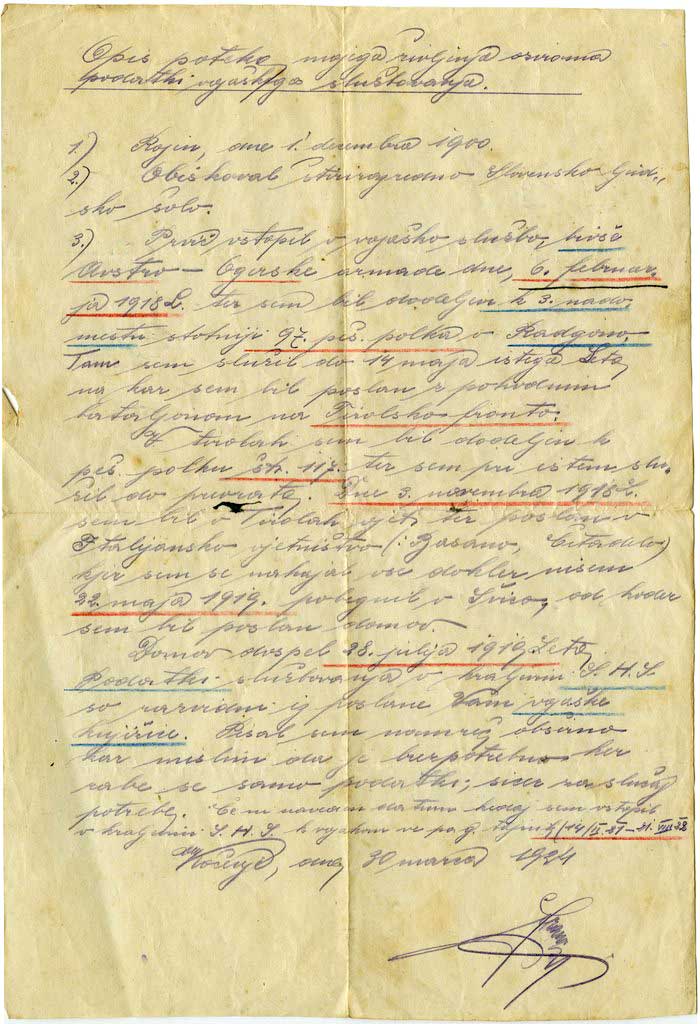 Opis poteka mojega življenja oziroma
podatki vojaškega službovanja.
1.) Rojen, dne 1. decembra 1900.
2.) Obiskoval štirirazredno Slovensko ljud-
sko šolo.
3.) Prvič vstopil v vojaško službo, bivše
Avstro – Ogerske armade dne, 6. februar-
ja 1918 L. ter sem bil dodeljen k 3. nado-
mestni stotniji 97. peš. polka v Radgono.
Tam sem služil do 14 maja istega Leta,
na kar sem bil poslan z pohodnim
bataljonom na Tirolsko fronto.
V tirolah sem bil dodeljen k
peš. polku št. 117. ter sem pri istem slu-
žil do prevrata. Dne 3. novembra 1918 L.
sem bil v Tirolah vjet, ter poslan v
Italijansko vjetništvo (: Basano, Citadela)
kjer sem se nahajal vse dokler nisem
22. maja 1919. pobegnil v Švico, od koder
sem bil poslan domov.
Domov dospel 28. julija 1919 Leta,
Podatki službovanja v kraljevini S. H. S
so razvidni iz poslane Vam vojaške
knjižice. Pisal sem namreč obširno
kar mislim da je brezpotrebno ker
rabe se samo podatki; sicer za slučaj
potrebe. Če ni naveden datum kedaj sem vstopil
v kraljevini S. H. S. k vojakom
30 marca 1924